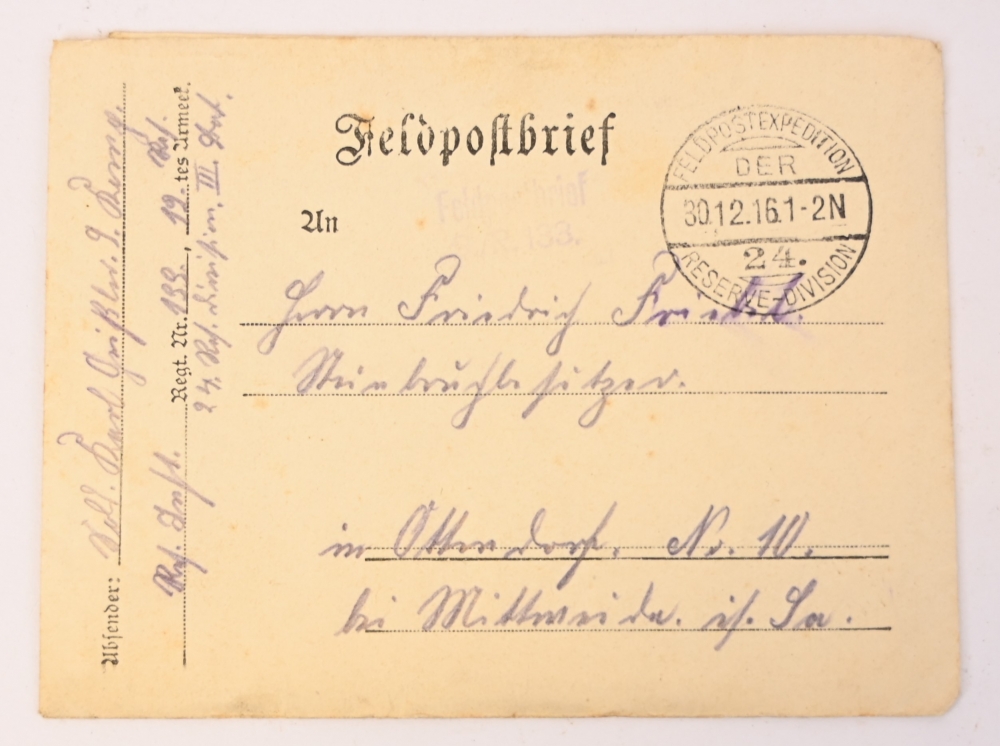 Feldpostbrief
FELDPOSTEXPEDITION
DER
30.12.16.1-2N
24.
RESERVE-DIVISION
Feldpostbrief
133.
An
Herrn Friedrich
Steinbruchbesitzer.
in Ottendorf, No. 10.
bei Mittweida. i/. Sa.
Absender: Sold. Karl Geißler. 9. Komp.
Res. Inft. Regt. Nr. 133, 19-tes Res. Armeek.
24. Res. Division, III. Bat.